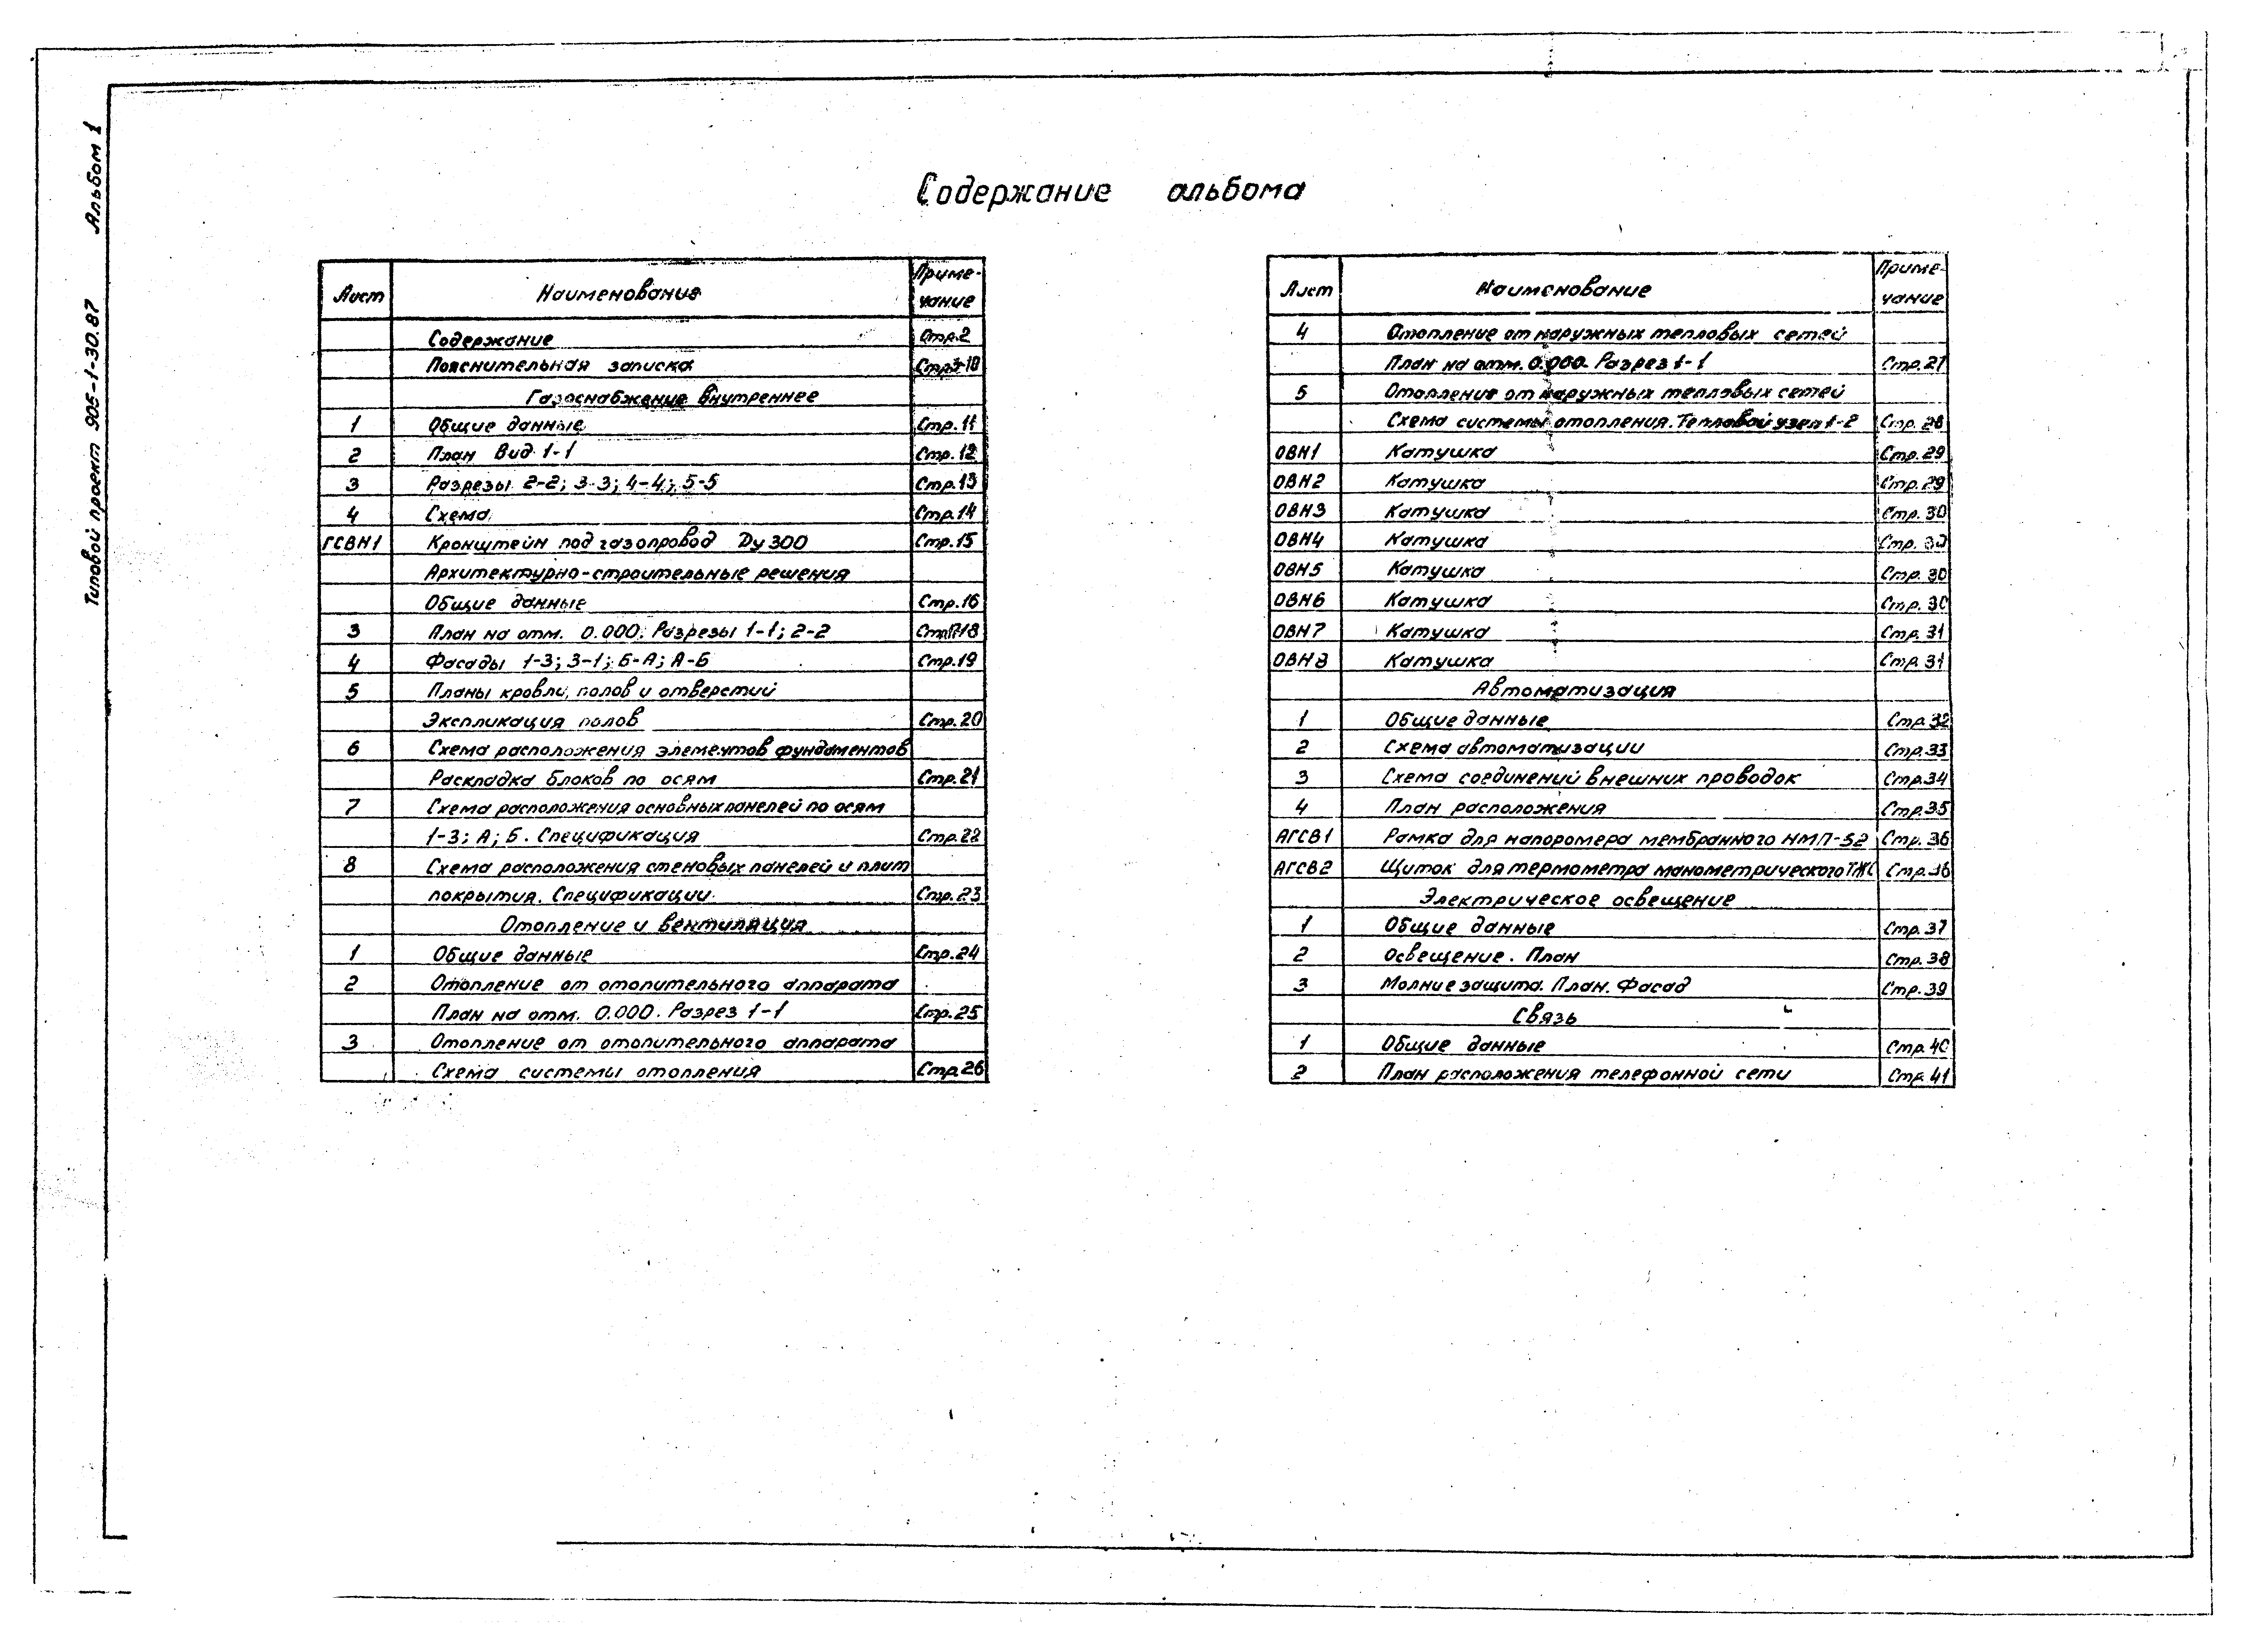 Типовой проект 905-1-30.87 Альбом 1
Содержание альбома
Лист Наименование Приме-
чание
Содержание Стр.2
Пояснительная записка Стр.3-10
Газоснабжение внутреннее
1 Общие данные Стр.11
2 План Вид 1-1 Стр.12
3 Разрезы 2-2; 3-3; 4-4; 5-5 Стр.13
4 Схема Стр.14
ГСВН1 Кронштейн под газопровод Ду 300 Стр.15
Архитектурно-строительные решения
Общие данные Стр.16
3 План на отм. 0.000. Разрезы 1-1; 2-2
4 Фасады 1-3; 3-1; Б-А; А-Б Стр.19
5 Планы кровли, полов и отверстий
Экспликация полов Стр.20
6 Схема расположения элементов фундаментов
Раскладка блоков по осям Стр.21
7 Схема расположения основных панелей по осям
1-3; А; Б. Спецификация Стр.22
8 Схема расположения стеновых панелей и плит
покрытия. Спецификации. Стр.23
Отопление и вентиляция
1 Общие данные Стр.24
2 Отопление от отопительного аппарата
План на отм. 0.000. Разрез 1-1 Стр.25
3 Отопление от отопительного аппарата
Схема системы отопления Стр.26
Лист Наименование Приме-
чание
4 Отопление от наружных тепловых сетей
План на отм. 0.000. Разрез 1-1 Стр.27
5 Отопление от наружных тепловых сетей
Схема системы отопления. Тепловой узел 1-2 Стр. 28
ОВН1 Катушка Стр.29
ОВН2 Катушка Стр.29
ОВН3 Катушка Стр. 30
ОВН4 Катушка Стр. 30
ОВН5 Катушка Стр. 30
ОВН6 Катушка Стр. 30
ОВН7 Катушка Стр. 31
ОВН8 Катушка Стр. 31
Автоматизация
1 Общие данные Стр.32
2 Схема автоматизации Стр.33
3 Схема соединений внешних проводок Стр.34
4 План расположения Стр.35
АГСВ1 Рамка для напоромера мембранного НМП-52 Стр. 36
АГСВ2 Щиток для термометра манометрического ТЖС Стр.36
Электрическое освещение
1 Общие данные Стр. 37
2 Освещение. План Стр. 38
3 Молниезащита. План. Фасад Стр. 39
Связь
1 Общие данные Стр.40
2 План расположения телефонной сети Стр.41